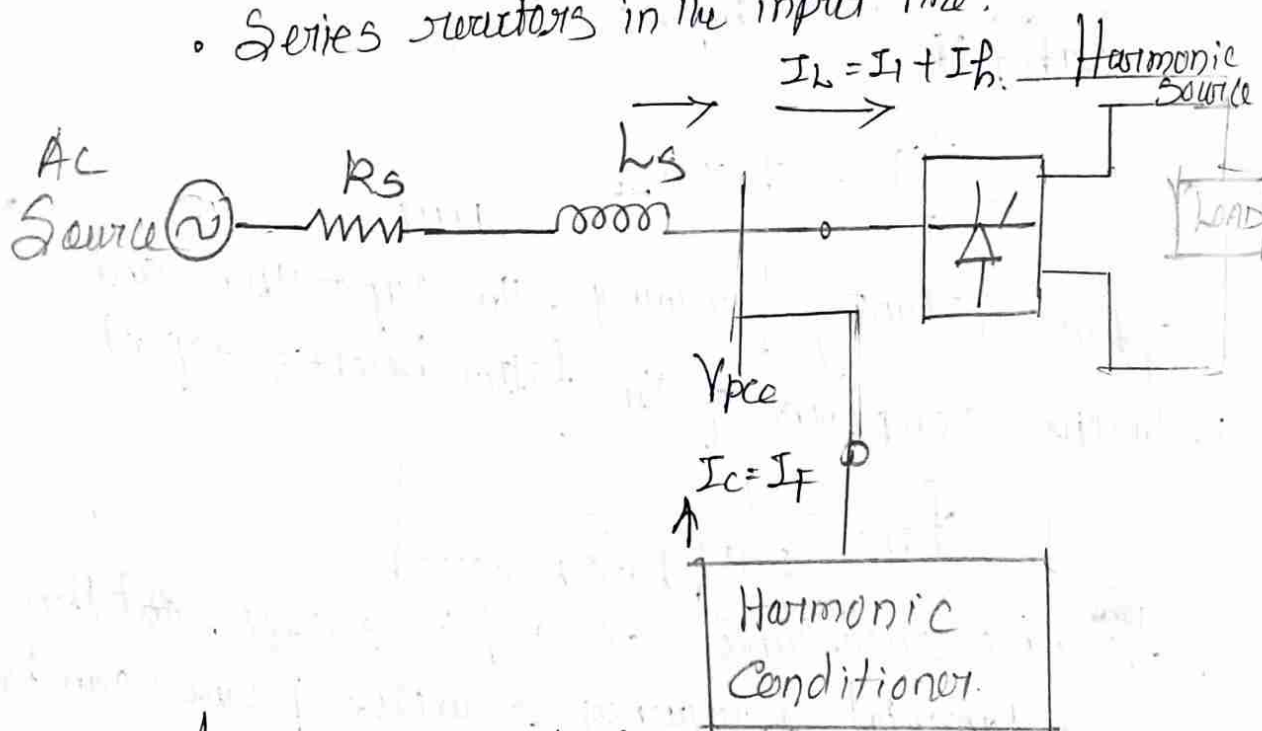 • Series reactors in the input line.
IL = I1 + Ih. Harmonic
source
AC
Source
Rs
Ls
LOAD
Vpcc
Ic = IF
Harmonic
Conditioner.